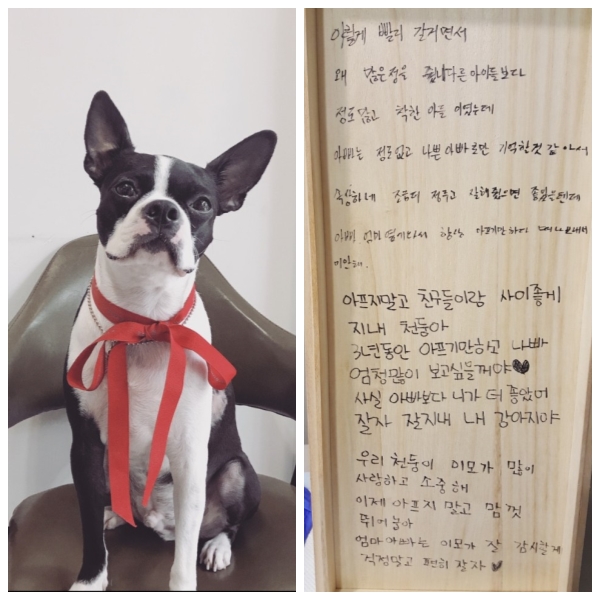 이렇게 빨리 갈거면서
왜 많은정을 줬니 다른아이들보다
정도많고 착한 아들 이였는데
아빠는 정도없고 나쁜아빠로만 기억한것 같아서
속상하네 조금더 정주고 잘해줬으면 좋았을텐데
아빠 엄마 옆에와서 항상 아프기만하다 떠나보내서
미안해.
아프지말고 친구들이랑 사이좋게
지내 천둥아
3년동안 아프기만하고 나빠
엄청많이 보고싶을꺼야♥
사실 아빠보다 니가 더 좋았어
잘자 잘지내 내 강아지야
우리 천둥이 이모가 많이
사랑하고 소중해
이제 아프지 말고 맘껏
뛰어놀아
엄마아빠는 이모가 잘 감시할게
걱정말고 편히 잘자♥